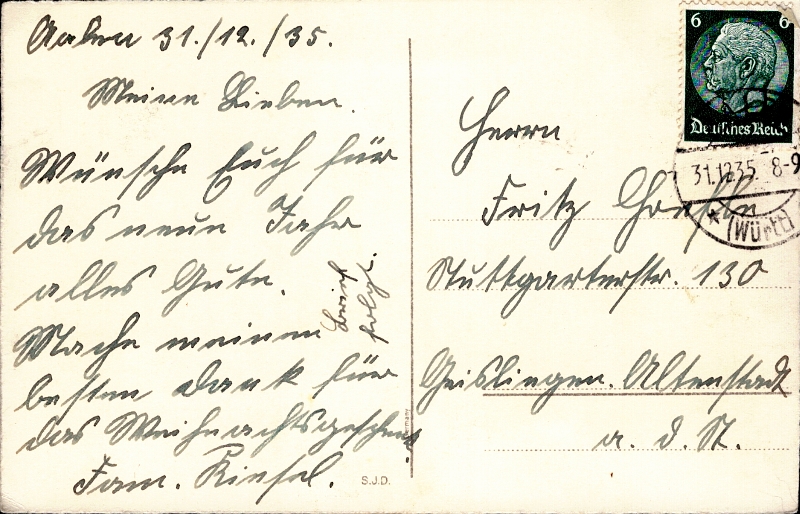 Aalen 31./12./35.
Meine Lieben.
Wünsche Euch für
das neue Jahr
alles Gute.
Mache meinen
besten Dank für
das Weihnachtsgeschenk
Fam. Kiesel.
Brief
folgt.
S.J.D.
Herrn
Fritz
Stuttgarterstr. 130
Geislingen. Altenstadt
a. d. St.
6 6
Deutsches Reich
31.12.35. 8-9
(Württ)